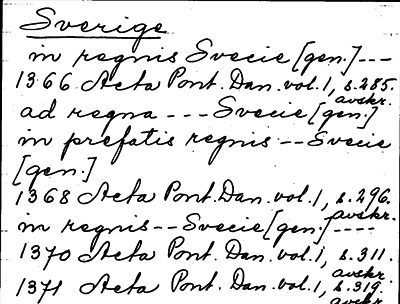 Sverige
in regnis Svecie [gen.] ---
1366 Acta Pont. Dan. vol. 1, s. 285.
avskr.
ad regna --- Svecie [gen.]
in prefatis regnis -- Svecie
[gen.]
1368 Acta Pont. Dan. vol. 1, s. 296.
avskr.
in regnis -- Svecie [gen.] ----
1370 Acta Pont. Dan. vol. 1, s. 311.
avskr.
1371 Acta Pont. Dan. vol. 1, s. 319.
avskr.